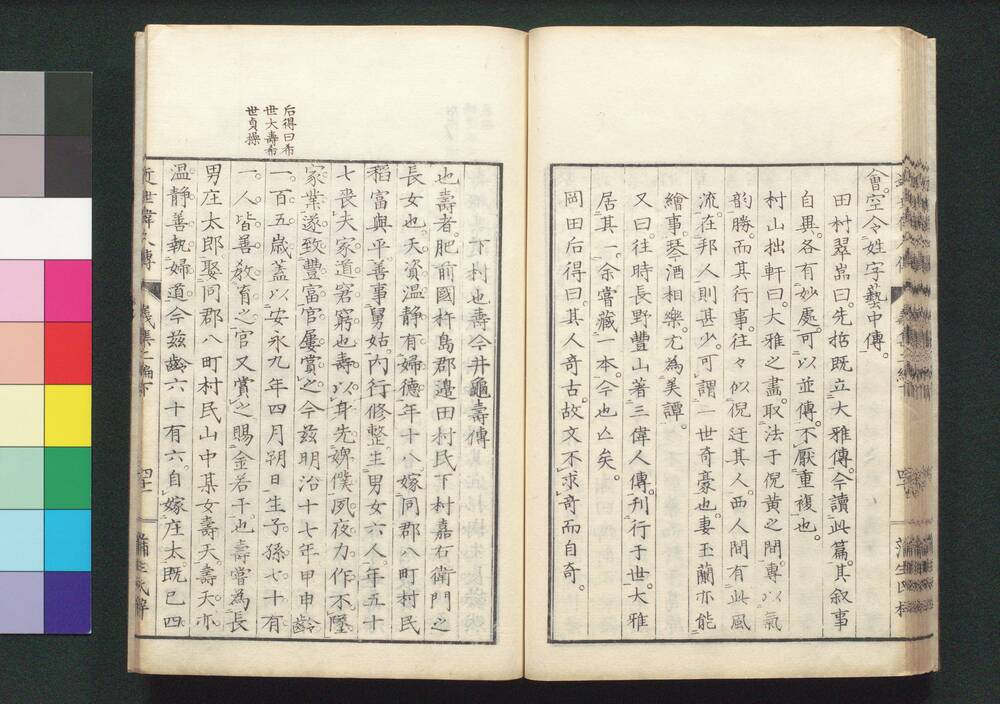 會空令姓字藝中傳。
田村翠嵓曰。先哲既立大雅傳。今讀此篇。其叙事
自異。各有妙處。可以並傳。不厭重複也。
村山拙軒曰。大雅之畫。取法于倪黄之間。專以氣
韵勝。而其行事。往々似倪迂其人。西人間有此風
流。在邦人則甚少。可謂一世奇豪也。妻玉蘭亦能
繪事。琴酒相樂。尤為美譚。
又曰。往時長野豐山著三偉人傳。刊行于世。大雅
居其一。余嘗藏一本。今也亡矣。
岡田后得曰。其人奇古。故文不求奇而自奇。
下村也壽今井龜壽傳
也壽者。肥前國杵島郡邊田村民下村嘉右衛門之
長女也。天資温静有婦德。年十八。嫁同郡八町村民
稻富與平。善事舅姑。内行修整。生男女六人。年五十
七喪夫。家道窘窮。也壽以身先婢僕。夙夜力作不墜
家業。遂致豐富。官屢賞之。今茲明治十七年甲申。齡
一百五歳。蓋以安永九年四月朔日生。子孫七十有
一人。皆善教育之。官又賞之。賜金若干。也壽嘗為長
男庄太郎。娶同郡八町村民山中某女壽天。壽天亦
温静善執婦道。今茲齡六十有六。自嫁庄太。既已四
后得曰希
世大壽希
世貞操
近世偉人傳
義集二編下
蒲生氏